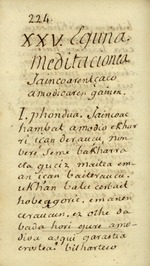 224.
XXV. Eguna.
Meditacionea
Jaincoarentcaco
amodioaren gainean.
I. phondua. Jaincoac
hambat amodio ekhar
ri içan deraucu non
bere Seme bakharra
eta guciz maitea eman
içan baiteraucu.
ukhan balu cerbait
hobeagoric, eman en
ceraucun. ez othe da
bada hori gure amo
dioa asqui garastia
erostea? bilhatceco